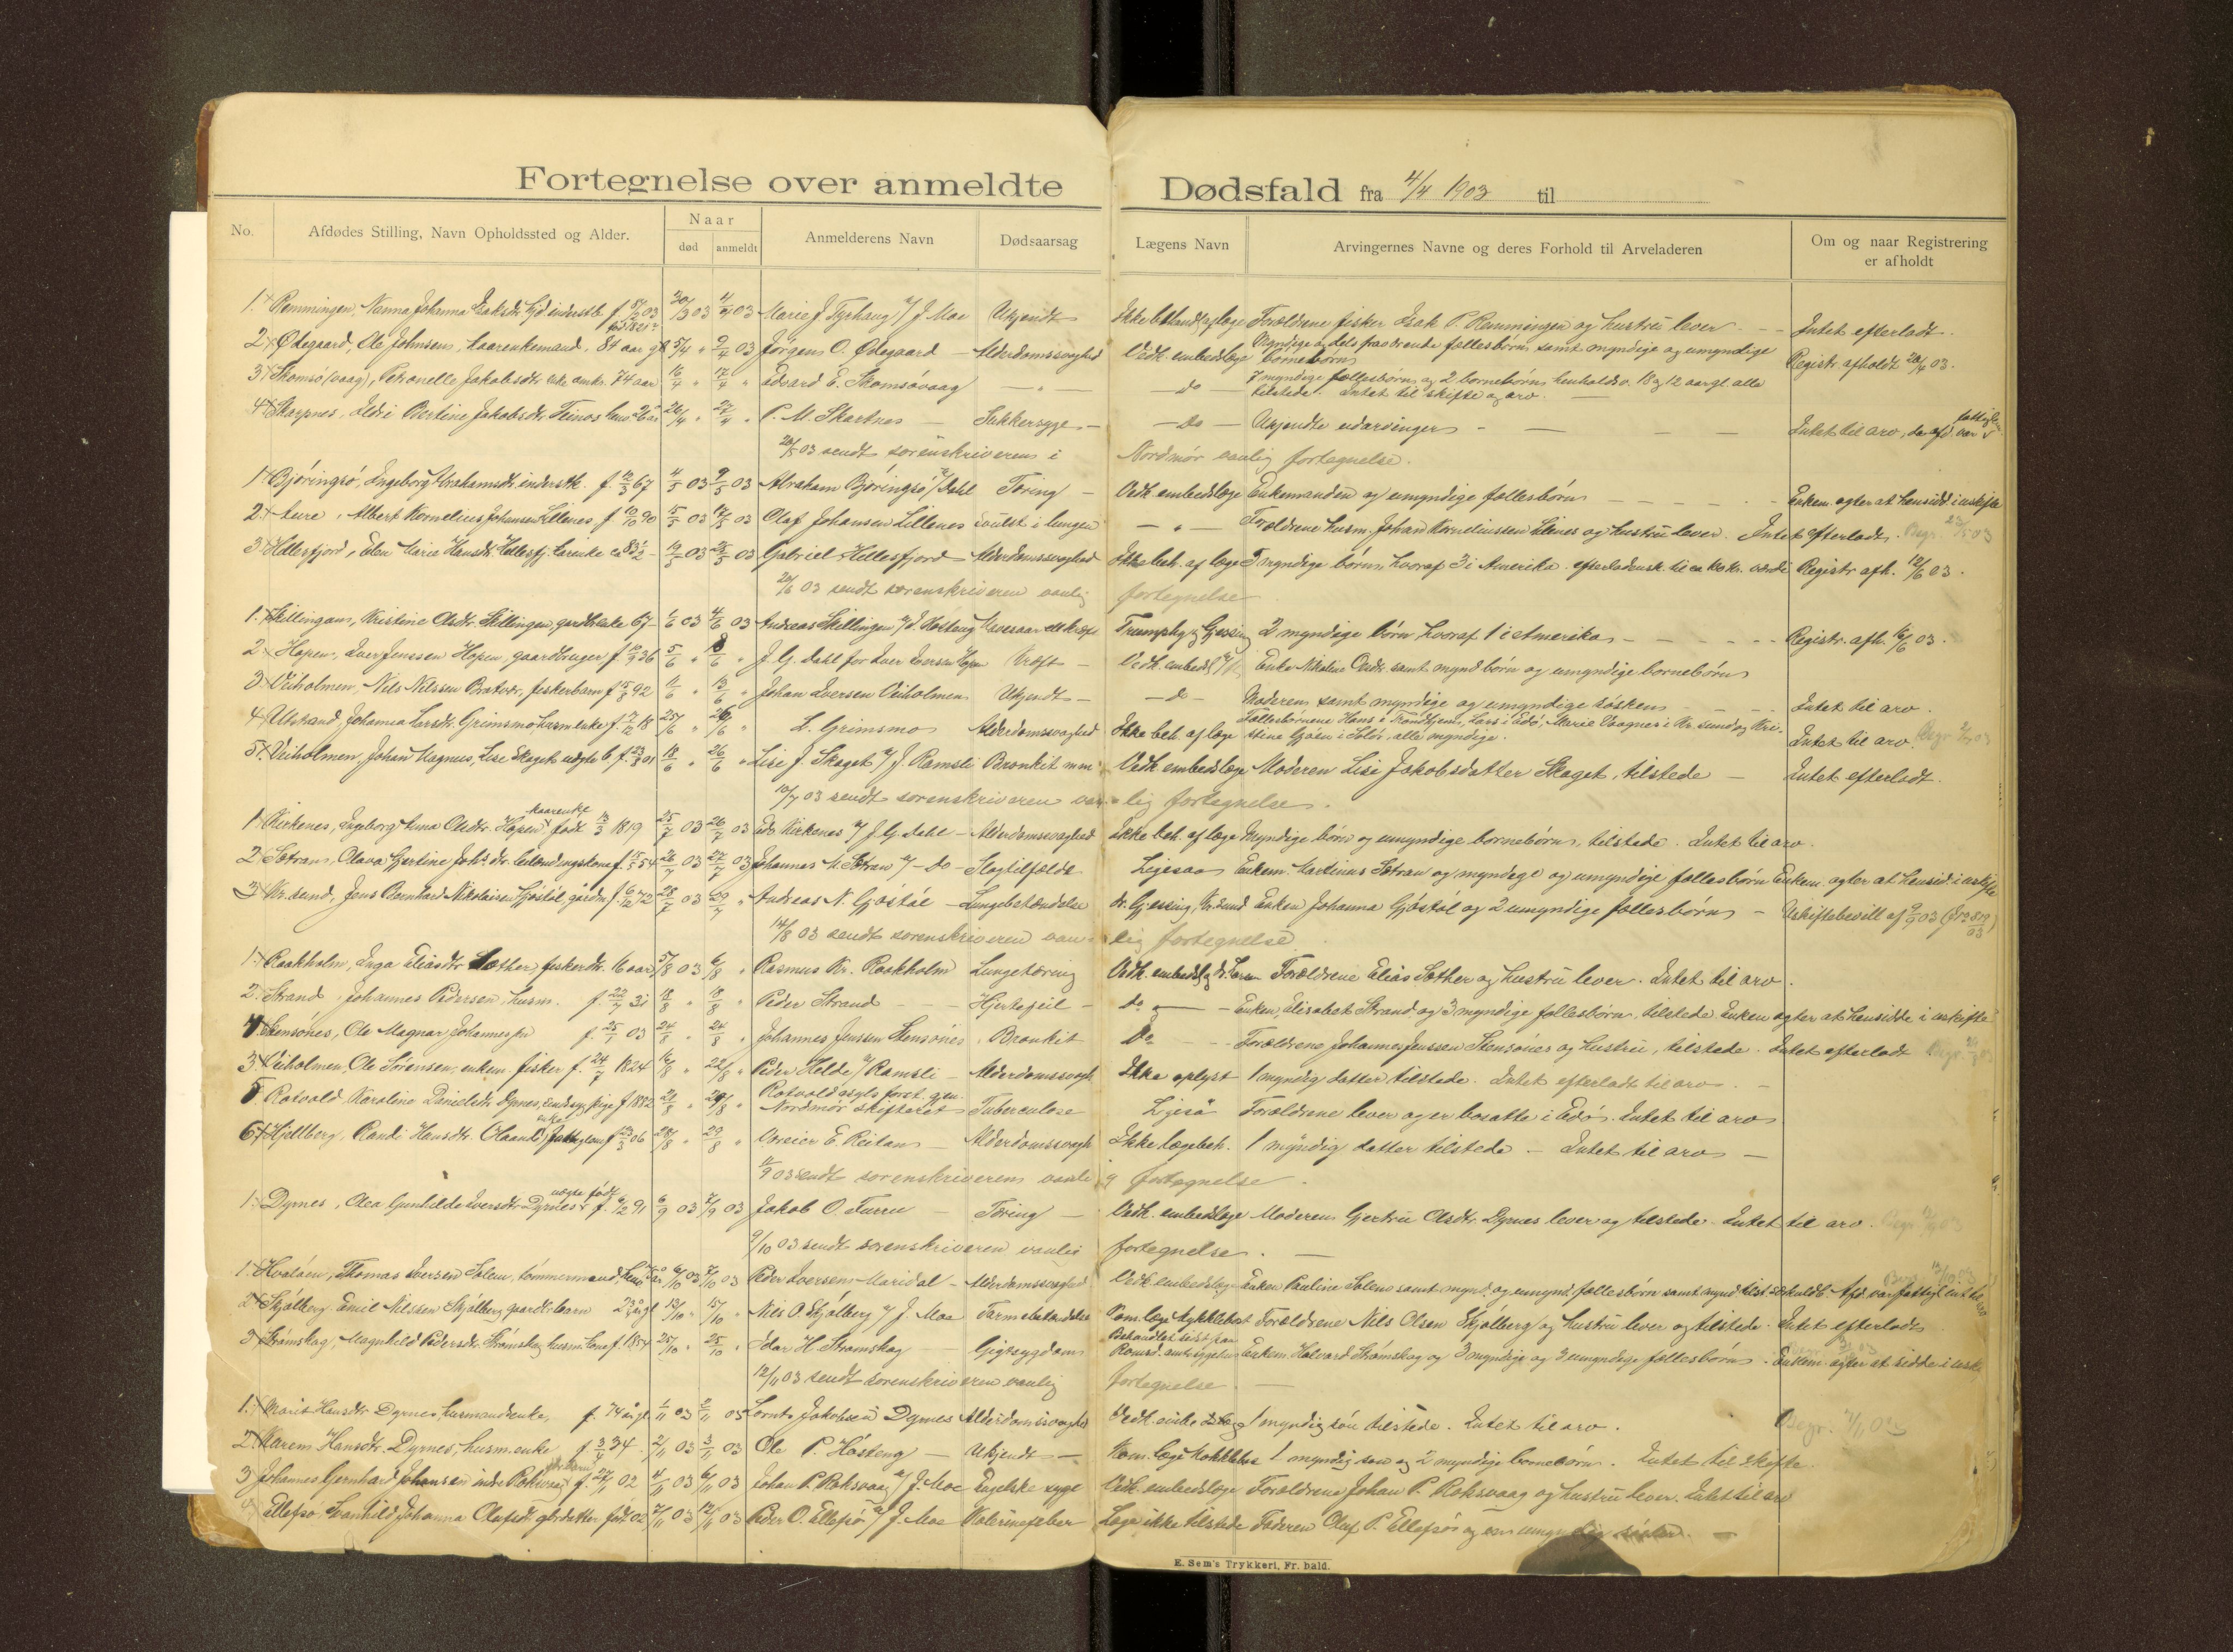 Fortegnelse over anmeldte Dødsfald fra 4/4 1903 til
No. Afdødes Stilling, Navn Opholdssted og Alder. Naar død anmeldt Anmelderens Navn Dødsaarsag Lægens Navn Arvingernes Navne og deres Forhold til Arveladeren Om og naar Registrering er afholdt
1 Remmingen, Nanna Johanna Isaksdtr 03 30/3 03 4/4 03 Marie J. Tyrhaug v/ J. Moe Ukjendt Ikke behandl. af læge Forældrene fisker Isak P. Remmingen og hustru lever Intet efterladt.
2 Ødegaard, Ole Johnsen, kaarenkemand, 84 aar gl 5/4 " 9/4 03 Jørgen O. Ødegaard Alderdomssvaghed Vedk. embedslæge Myndige og dels fraværende fællesbørn samt myndige og umyndige børnebørn Registr. afholdt 20/4 03.
3 Skomsø(vaag), Petronelle Jakobsdtr enke 74 aar 16/4 " 17/4 " Edvard E. Skomsøvaag — " do 7 myndige fællesbørn og 2 børnebørn henholdsv. 18 og 12 aar gl. alle tilstede. Intet til skifte og arv.
4 Skarpnes, Bertine Jakobsdtr 26/4 " 27/4 " P. M. Skartnes Sukkersyge Do Ukjendte udarvinger Intet til arv, da afd. var fattiglem
20/5 03 sendt sorenskriveren i Nordmør vanlig fortegnelse.
1 Bjøringsø, Ingeborg Abrahamsdtr inderstk. f. 12/3 67 4/5 03 9/5 03 Abraham Bjøringsø v/ Dahl Tæring Vedk. embedslæge Enkemanden og umyndige fællesbørn Enkem. agter at hensidde i uskifte
2 Aure, Albert Kornelius Johansen Lillenes f. 10/10 90 15/5 03 18/5 03 Olaf Johansen Lillenes Svulst i lungen — " — Forældrene husm. Johan Korneliussen Lillenes og hustru lever. Intet efterladt. Begr. 23/5 03
3 Hellesfjord, Elen Marie Hansdtr Hellesfj. 83½ 19/5 03 25/5 03 Gabriel Hellesfjord Alderdomssvaghed Ikke beh. af læge 5 myndige børn hvoraf 3 i Amerika. Registr. afh. 12/6 03.
20/6 03 sendt sorenskriveren vanlig fortegnelse
1. Skillingen, Kristine Olsdtr. Skillingen, gardbr.enke 67 1/6 03 4/6 03 Andreas Skillingen v/ J. Høsteng Gjessing 2 myndige børn hvoraf 1 i Amerika Registr. afh. 16/6 03.
2 Hopen, Iver Jenssen Hopen, gaardbruger f. 36 5/6 " 8/6 " J. G. Dahl for Iver Iversen Hopen Kræft Vedk. embedsl. Enke Nikoline Olsdtr. samt mynd. børn og umyndige børnebørn
3 Veiholmen, Nils Nilssen Bratvær, fiskerbarn f. 15/8 92 11/6 " 13/6 " Johan Iversen Veiholmen Ukjendt — do — Moderen samt myndige og umyndige søsken Intet til arv.
4 Ulstrand, Johanna Larsdtr. Grimsmo husm.enke f. 17/12 18 25/6 " 26/6 " L. Grimsmo Alderdomssvaghed Ikke beh. af læge Fællesbørnene Hans i Trondhjem, Lars i Edø, Marie Vaagnes i Kr.sund og Kristine Gjøen i Solør, alle myndige. Intet til arv.
5 Veiholmen, Johan Magnus, Lise Skagets uægte b. f. 23/8 01 18/6 26/6 " Lise J. Skaget v/ J. Ramsli Bronkit mm Vedk. embedslæge Moderen Lise Jakobsdatter Skaget, tilstede Intet efterladt.
10/7 03 sendt sorenskriveren vanlig fortegnelse.
1 Kirkenes, Ingeborg Anna Olsdtr. Hopen kaarenke født 13/3 1819 25/7 03 26/7 03 Edv. Kirkenes v/ J. G. Dahl Alderdomssvaghed Ikke beh. af læge Myndige børn og umyndige børnebørn, tilstede. Intet til arv.
2 Sætran, Olava Gjertine Joh.dtr. f. 15/5 54 26/7 03 27/7 03 Johannes M. Sætran v/ Do Slagtilfælde Ligesaa Enkem. Martinus Sætran og myndige og umyndige fællesbørn Enkem. agter at hensid. i uskifte
3 Kr.sund, Jens Bernhard Nikolaisen Gjøstøl, gårdm. f. 6/12 72 28/7 03 29/7 " Andreas N. Gjøstøl Lungebetændelse dr. Gjessing, Kr.sund Enken Johanna Gjøstøl og 2 umyndige fællesbørn Uskiftebevill. af 9/9 03
14/8 03 sendt sorenskriveren vanlig fortegnelse
1. Raakholm, Inga Eliasdtr Sæther fiskerdtr. 16 aar 5/8 03 6/8 " Rasmus Kr. Raakholm Lungetæring Vedk. embedsl. Forældrene Elias Sæther og hustru lever. Intet til arv.
2 Strand, Johannes Pedersen, husm. f. 22/7 31 18/8 18/8 " Peder Strand Hjertefeil Do Enken Elisabet Strand og 3 myndige fællesbørn, tilstede. Enken agter at hensidde i uskifte
4 Stensönes, Ole Magnar Johannessen f. 25/1 03 24/8 " 24/8 " Johannes Jenssen Stensönes Bronkit Do Forældrene Johannes Jenssen Stensönes og hustru, tilstede. Intet efterladt
3 Veiholmen, Ole Sörensen, enkem. fisker f. 24/7 1824 16/8 " 22/8 " Peder Helde v/ Ramsli Alderdomssvagh. Ikke oplyst 1 myndig datter tilstede. Intet efterladt til arv.
5 Rotvold Karoline Danielsdtr Dyrnes, sindssyg pige f. 1882 21/8 " 29/8 " Rotvold asyls forst. gjen. Nordmør skifteret Tuberculose Ligeså Forældrene lever og er bosatte i Edö. Intet til arv
6 Hjellberg, Randi Hansdtr. enke fattiglem f. 23/3 06 28/8 " 29/8 " E. Reitan Alderdomssvagh. Ikke lægebeh. 1 myndig datter tilstede – Intet til arv
11/9 03 sendt sorenskriveren vanlig fortegnelse.
1. Dyrnes, Olea Gunhilde Iversdtr Dyrnes uægte født f. 6/2 91 6/9 03 7/9 03 Jakob O. Furru Tæring Vedk. embedslæge Moderen Gjertru Olsdtr. Dyrnes lever og tilstede. Intet til arv.
9/10 03 sendt sorenskriveren vanlig fortegnelse.
1. Hvalöen, Thomas Iversen Solem, tömmermand 6/10 03 7/10 03 Peder Iversen Meridal Alderdomssvaghed Vedk. embedslæge Enken Pauline Solem samt mynd. og umynd. fællesbørn Afd. var fattigl.
2 Skjølberg Emil Nilssen Skjølberg gaardbr.barn 2 aar gl 13/10 " 15/10 " Nils O. Skjølberg v/ J. Moe Tarmebetændelse Kom.læge Forældrene Nils Olsen Skjølberg og hustru lever og tilstede. Intet efterladt
3 Strømskag, Magnhild Pedersdtr. Strømskag husm.kone f. 1854 25/10 " 25/10 " Edvar H. Strømskag Gigtsygdom Behandlet sidst paa Romsd. amtssygehus Enkem. Halvard Strømskag og 3 myndige og 3 umyndige fællesbørn. Enkem. agter at sidde i uskifte
12/11 03 sendt sorenskriveren vanlig fortegnelse.
1. Marit Hansdtr Dyrnes, husmandsenke, f. 74 år gl. 1/11 03 2/11 03 Lornts Jakobsen Dyrnes Alderdomssvaghed 1 myndig sön tilstede. Intet til arv. Begr. 7/11 03
2 Karen Hansdtr. Dyrnes, husm.enke f. 3/3 34 2/11 03 3/11 03 Ole P. Høsteng Ukjendt Kom.læge 1 myndig søn og 2 myndige børnebörn. Intet til skifte.
3 Johannes Gernhard Johansen indre Roksvaag f. 27/1 02 4/11 03 6/11 03 Johan P. Roksvaag v/ J. Moe Engelske syge Vedk. embedslæge Forældrene Johan P. Roksvaag og hustru lever. Intet til arv
4 Ellefsø Svanhild Johanna Olafsdt. gbrdatter født 02 7/11 03 12/11 03 Peder O. Ellefsø v/ J. Moe Kolerinefeber Læge ikke tilstede Faderen Olaf P. Ellefsø og
E. Sem's Trykkeri, Fr.hald.